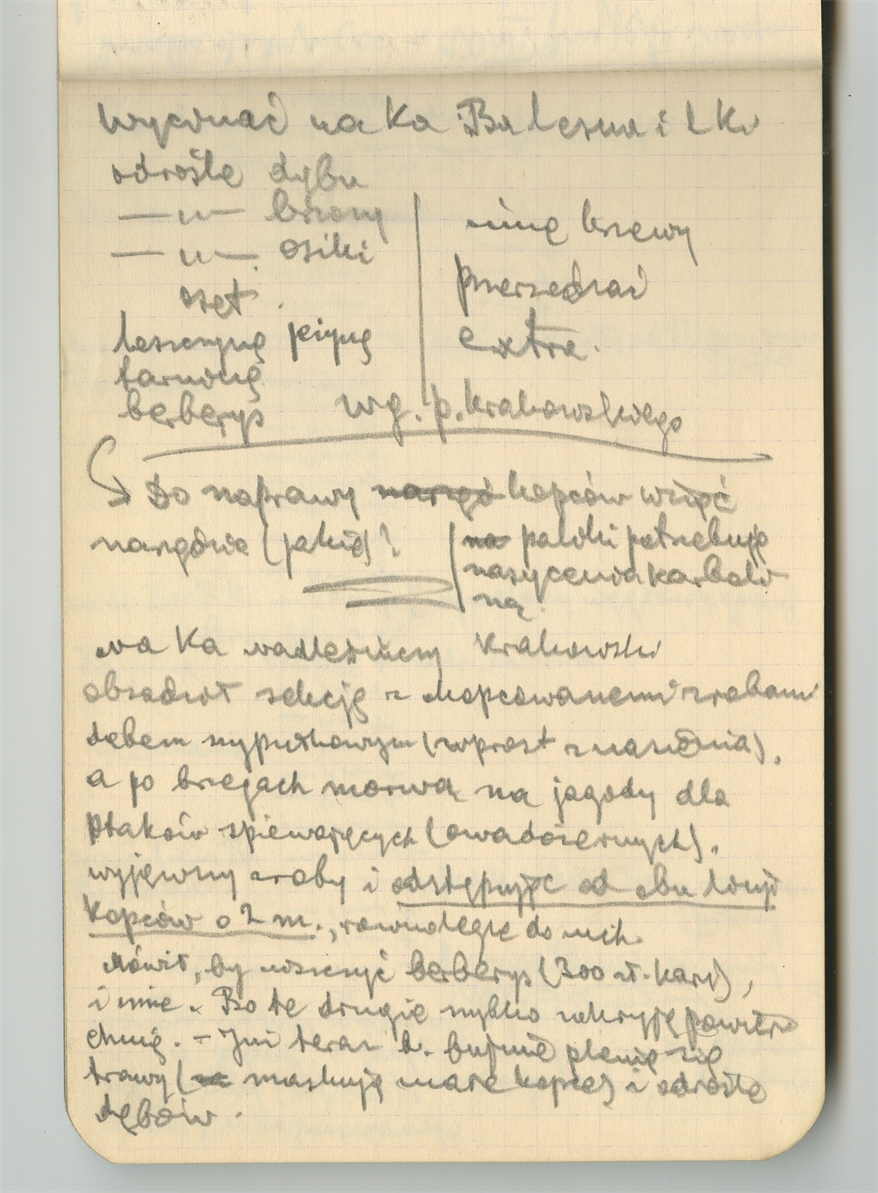 wycinać na Ka Ba lesna i Lkr
odrośle dębu
—„— brzozy
—„— osiki
oset
leszczynę pizyng
tarninę
berberys
inne krzewy
przerzedzać
extra.
wg. p. Krakowskiego
Do naprawy narzę kopców wziąć
narzędzia (jakie)?
na palniki potrzebuję
nasycenia karboli
ną.
na Ka nadleśniczy Krakowski
obsadził sekcję z kopcowanemi zrębami
dębem szypułkowym (wprost z nasienia),
a po brzegach morwą na jagody dla
ptaków śpiewających (owadożernych).
wyjąwszy zręby i odstępując od obu linji
Kopców o 2 m., równolegle do nich.
Mówił, by niszczyć berberys (300 zł. kary),
i inne. Bo te drugie szybko zakryją powierz
chnię. – Już teraz b. bujnie plenią się
trawy (maskują małe kopce) i odrośle
dębów.